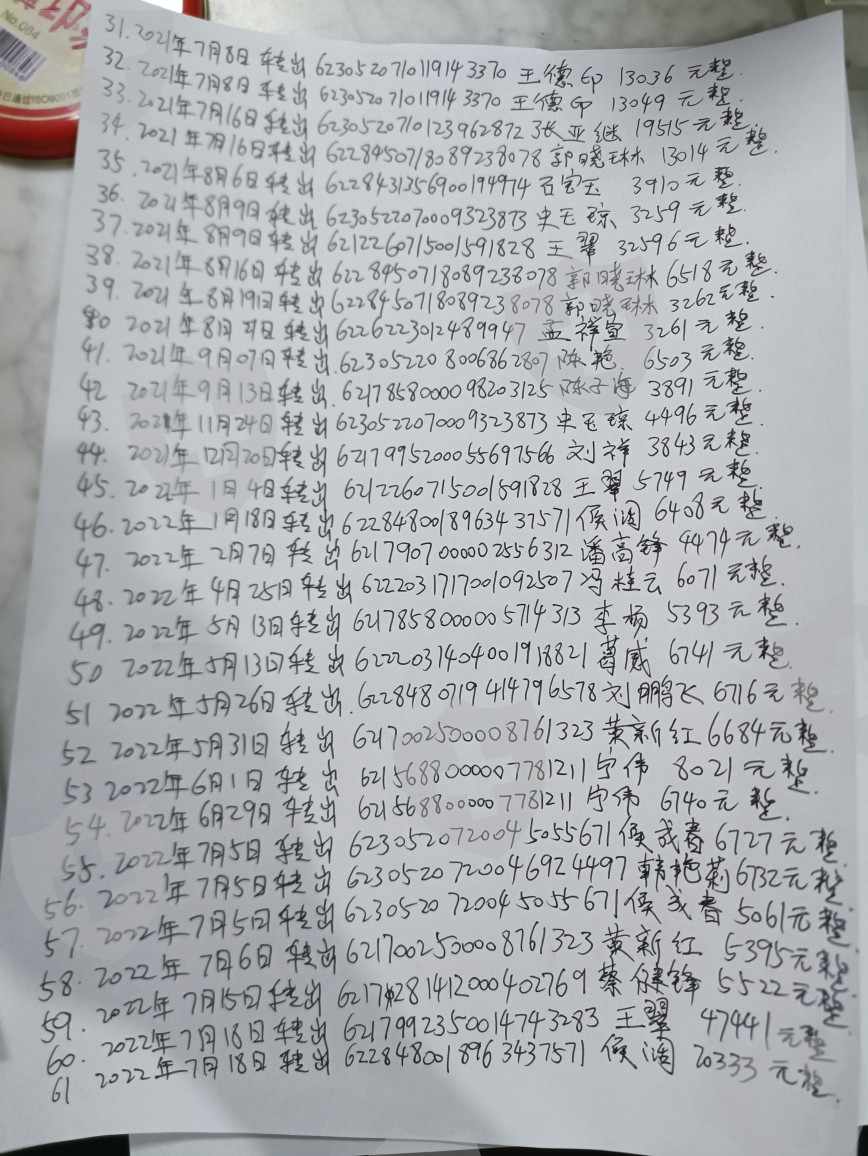 No.084
31.2021年7月8日转出6230520710119143370王德印 13036元整.
32.2021年7月8日转出6230520710119143370王德印 13049元整.
33.2021年7月16日转出6230520710123962872张亚继19515元整.
34.2021年7月16日转出6228450718089238078郭晓琳琳13014元整.
35.2021年8月6日转出6228431356900194974石宝玉 3910元整.
36.2021年8月9日转出6230522070009323873史玉琼 3259元整.
37.2021年8月9日转出6212260715001591828王翠 32596元整.
38.2021年8月16日转出6228450718089238078郭晓琳6518元整.
39.2021年8月19日转出6228450718089238078郭晓琳3262元整.
40 2021年8月21日转出6226223012489947孟祥宣 3261元整.
41.2021年9月07日转出.623052208006862807陈艳 6503元整.
42 2021年9月13日转出.6217858000098203125陈子海3891元整.
43.2021年11月24日转出6230522070009323873史玉琼4496元整.
44.2021年12月20日转出6217995200055697566刘祥 3843元整.
45.2022年1月4日转出6212260715001591828王翠5749元整.
46.2022年1月18日转出6228480018963437571侯阔6408元整.
47.2022年2月7日转出6217907000002556312潘高锋4474元整.
48.2022年4月25日转出6222031717001092507冯桂云6071元整.
49.2022年5月13日转出6217858000005714313李杨5393元整.
50 2022年5月13日转出6222031404001918821葛威6741元整.
51 2022年5月26日转出.6228480719414796578刘鹏飞6716元整.
52 2022年5月31日转出6217002500008761323黄新红6684元整.
53 2022年6月1日转出6215688000007781211宁伟 8021元整.
54.2022年6月29日转出6215688000007781211宁伟 6740元整.
55.2022年7月5日转出6230520720045055671侯成春6727元整.
56.2022年7月5日转出6230520720046924497韩艳莉6732元整.
57.2022年7月5日转出6230520720045055671侯成春5061元整.
58.2022年7月6日转出6217002500008761323黄新红5395元整.
59.2022年7月15日转出6217281412000402769蔡健锋5522元整.
60.2022年7月18日转出6217992350014743283王翠47441元整
61 2022年7月18日转出6228480018963437571侯阔20333元整.